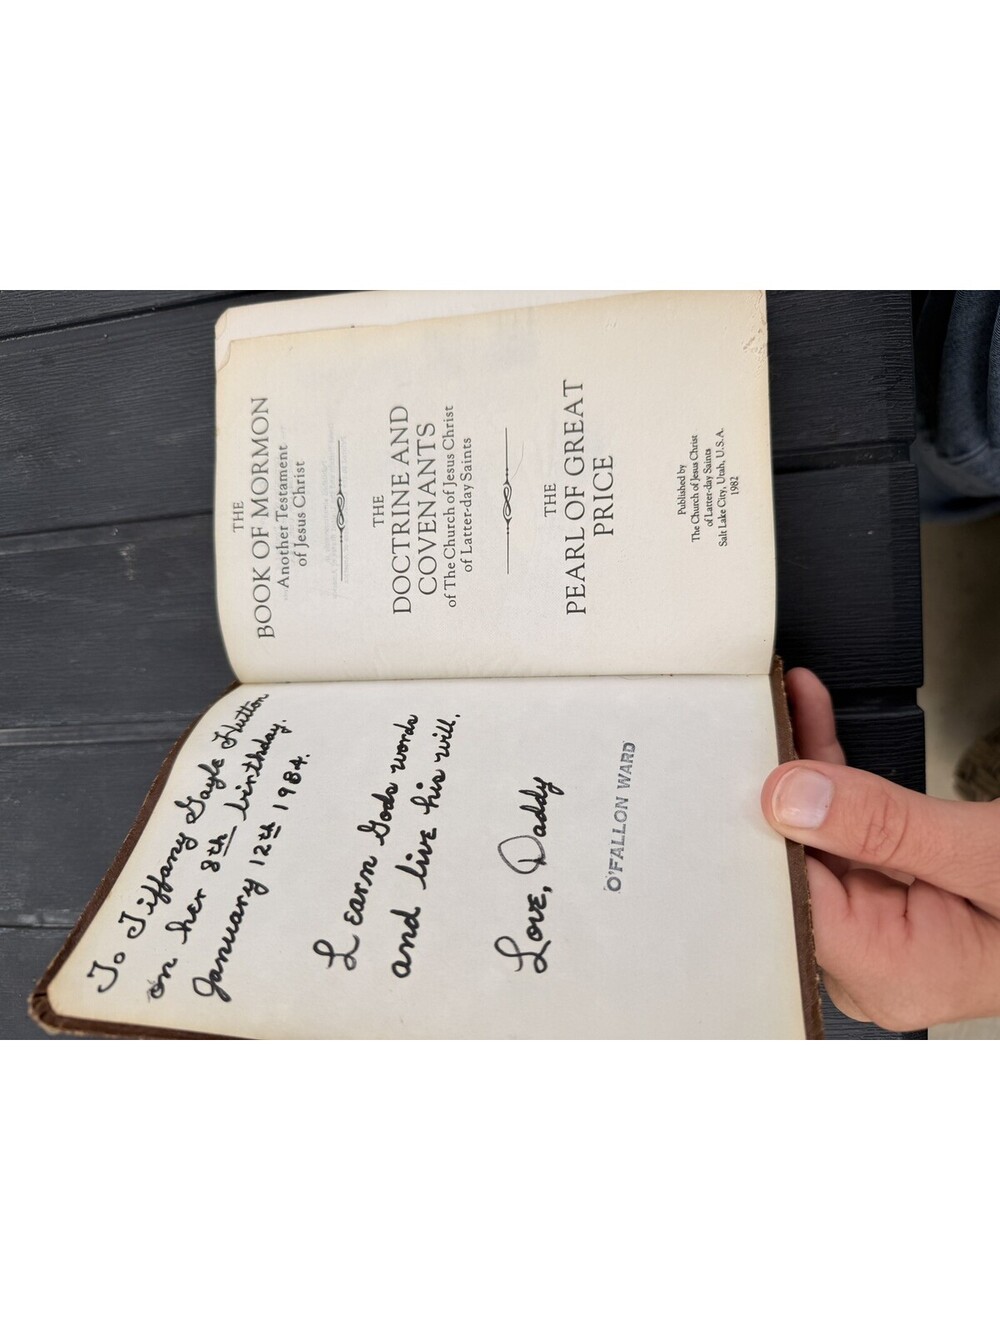 To Tiffany Gayle Hutton
on her 8th birthday.
January 12th 1984.
Learn Gods words
and live his will.
Love, Daddy
O'FALLON WARD
THE
BOOK OF MORMON
Another Testament
of Jesus Christ
THE
DOCTRINE AND
COVENANTS
of The Church of Jesus Christ
of Latter-day Saints
THE
PEARL OF GREAT
PRICE
Published by
The Church of Jesus Christ
of Latter-day Saints
Salt Lake City, Utah, U.S.A.
1982